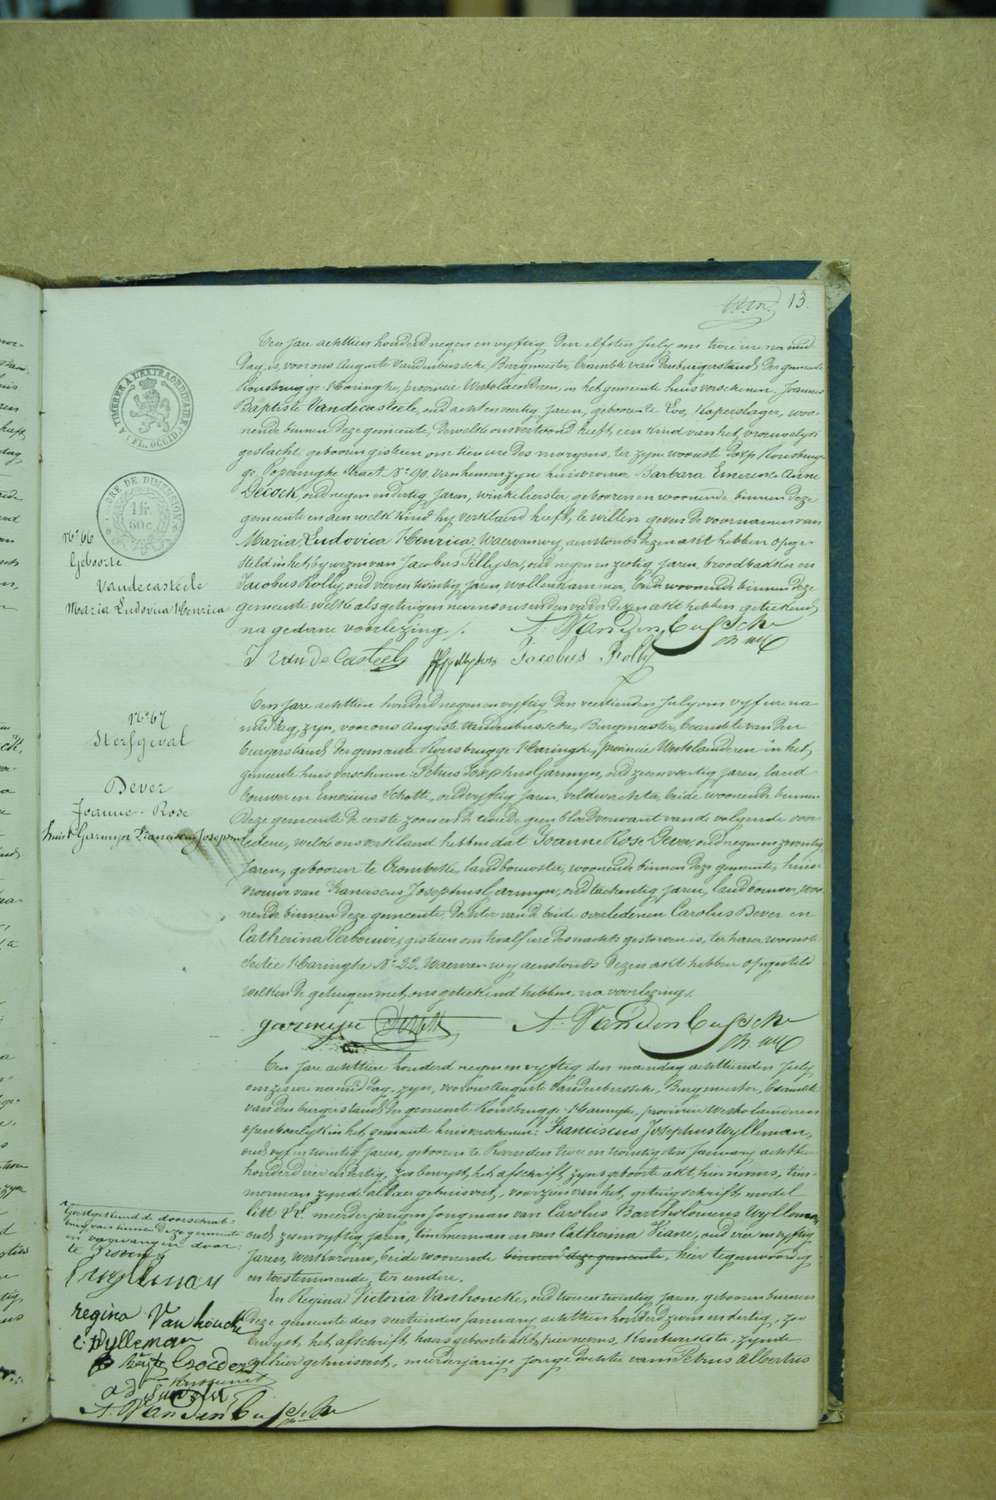 13.
TIMBRE A L'EXTRAORDINAIRE
(FL. OCCID.)
TIMBRE DE DIMENSION
1 fr
60 c.
N° 66
Geboorte
Vandecasteele
Maria Ludovica Henrica
Den jare achttien honderd negen en vyftig den elfsten July om twee ure na mid
dag, is voor ons Auguste Vandenbussche, Burgmeester, beambte van den burgerstand der gemeente
Rousbrugge-Haringhe, provincie Westvlaenderen, in het gemeente huis verschenen Joannes
Baptiste Vandecasteele, oud acht en veertig Jaren, geboren te Loo, Koperslager, woo-
nende binnen deze gemeente, dewelke ons vertoond heeft, een kind van het vrouwelyk
geslacht, geboren gisteren om tien ure des morgens, ter zyner woonste Dorp Rousbrug-
ge, Poperinghe Straet N° 90, van hem en zyne huisvrouw Barbara Emerence Anne
Decock, oud negen en dertig Jaren, winkelierster, geboren en woonende binnen deze
gemeente en aen welk kind hy verklaerd heeft, te willen geven de voornamen van
Maria Ludovica Henrica. Waervan wy aenstonds dezen akt hebben opge-
steld in het bywezen van Jacobus Pillyser, oud negen en zestig Jaren, broodbakker en
Jacobus Rolly, oud vier en twintig Jaren, wollenkammer, beide woonende binnen deze
gemeente welke als getuigen nevens ons en den vader dezen akt hebben geteekend,
na gedane voorlezing /.
A. VandenBussche
J Van de Casteele Jacobus Rolly
N° 67
Sterfgeval
Dever
Joanne-Rose
huisv Garmyn Franciscus Josephus
Den Jare achttien honderd negen en vyftig den veertienden July om vyf ure na
middag, zyn, voor ons Auguste Vandenbussche, Burgmeester, beambte van den
burgerstand der gemeente Rousbrugge-Haringhe, provincie Westvlaenderen in het
gemeente huis verschenen Petrus Josephus Garmyn, oud zeven veertig Jaren, land
bouwer en Emerius Schotte, oud vyftig Jaren, veldwachter, beide woonende binnen
deze gemeente de eerste zoon en de tweede geen bloedverwant van de volgende over-
ledene, welke ons verklaerd hebben dat Joanne Rose Dever, oud negen en zeventig
Jaren, geboren te Crombeke, landbouwster, woonende binnen deze gemeente, huis-
vrouw van Franciscus Josephus Garmyn, oud tachentig Jaren, landbouwer, woo-
nende binnen deze gemeente, dochter van de beide overledenen Carolus Dever en
Catherina Verbouwe, gisteren om half ure des nachts gestorven is, ter harer woonste
Sectie Haringhe N° 22. Waervan wy aenstonds dezen akt hebben opgesteld
welken de getuigen met ons geteekend hebben, na voorlezing /.
garmyn Schotte A. VandenBussche
Den Jare achttien honderd negen en vyftig den maendag achttienden July
om zes ure namiddag, zyn, voor ons Auguste Vandenbussche, Burgmeester, beambte
van den burgerstand der gemeente Rousbrugge-Haringhe, provincie Westvlaenderen
openbaerlyk in het gemeente huis verschenen: Franciscus Josephus Wylleman,
oud vyf en twintig Jaren, geboren te Reninghe den twee en twintigsten January achttien
honderd vier en dertig, zoo bewyst, het afschrift zyns geboorte akt, hiernevens, tim-
merman zynde aldaer gehuisvest, voorzien van het getuigschrift model
litt. meerderjarigen Jongman van Carolus Bartholomeus Wylleman,
oud zeven en vyftig Jaren, timmerman en van Catherina Viane, oud vier en vyftig
Jaren, werkvrouw, beide woonende binnen deze gemeente, hier tegenwoordig
en toestemmende, ter eendre.
En Regina Victoria Vanhoucke, oud twee en twintig Jaren, geboren binnen
deze gemeente den veertienden January achttien honderd zeven en dertig, zoo
bewyst, het afschrift haers geboorte akt, hiernevens, Kantwerkster, zynde
alhier gehuisvest, meerderjarige jonge dochter van Petrus Albertus
Goedgekeurd de doorschrab-
bing van binnen deze gemeente
en vervangen door
F wylleman
regina Vanhoucke
C. Wylleman
A. VandenBussche